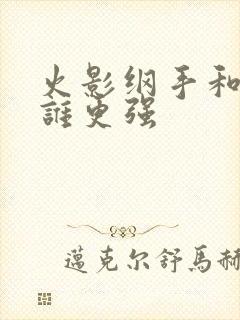 火影纲手和
誰更强
邁克尔舒馬赫